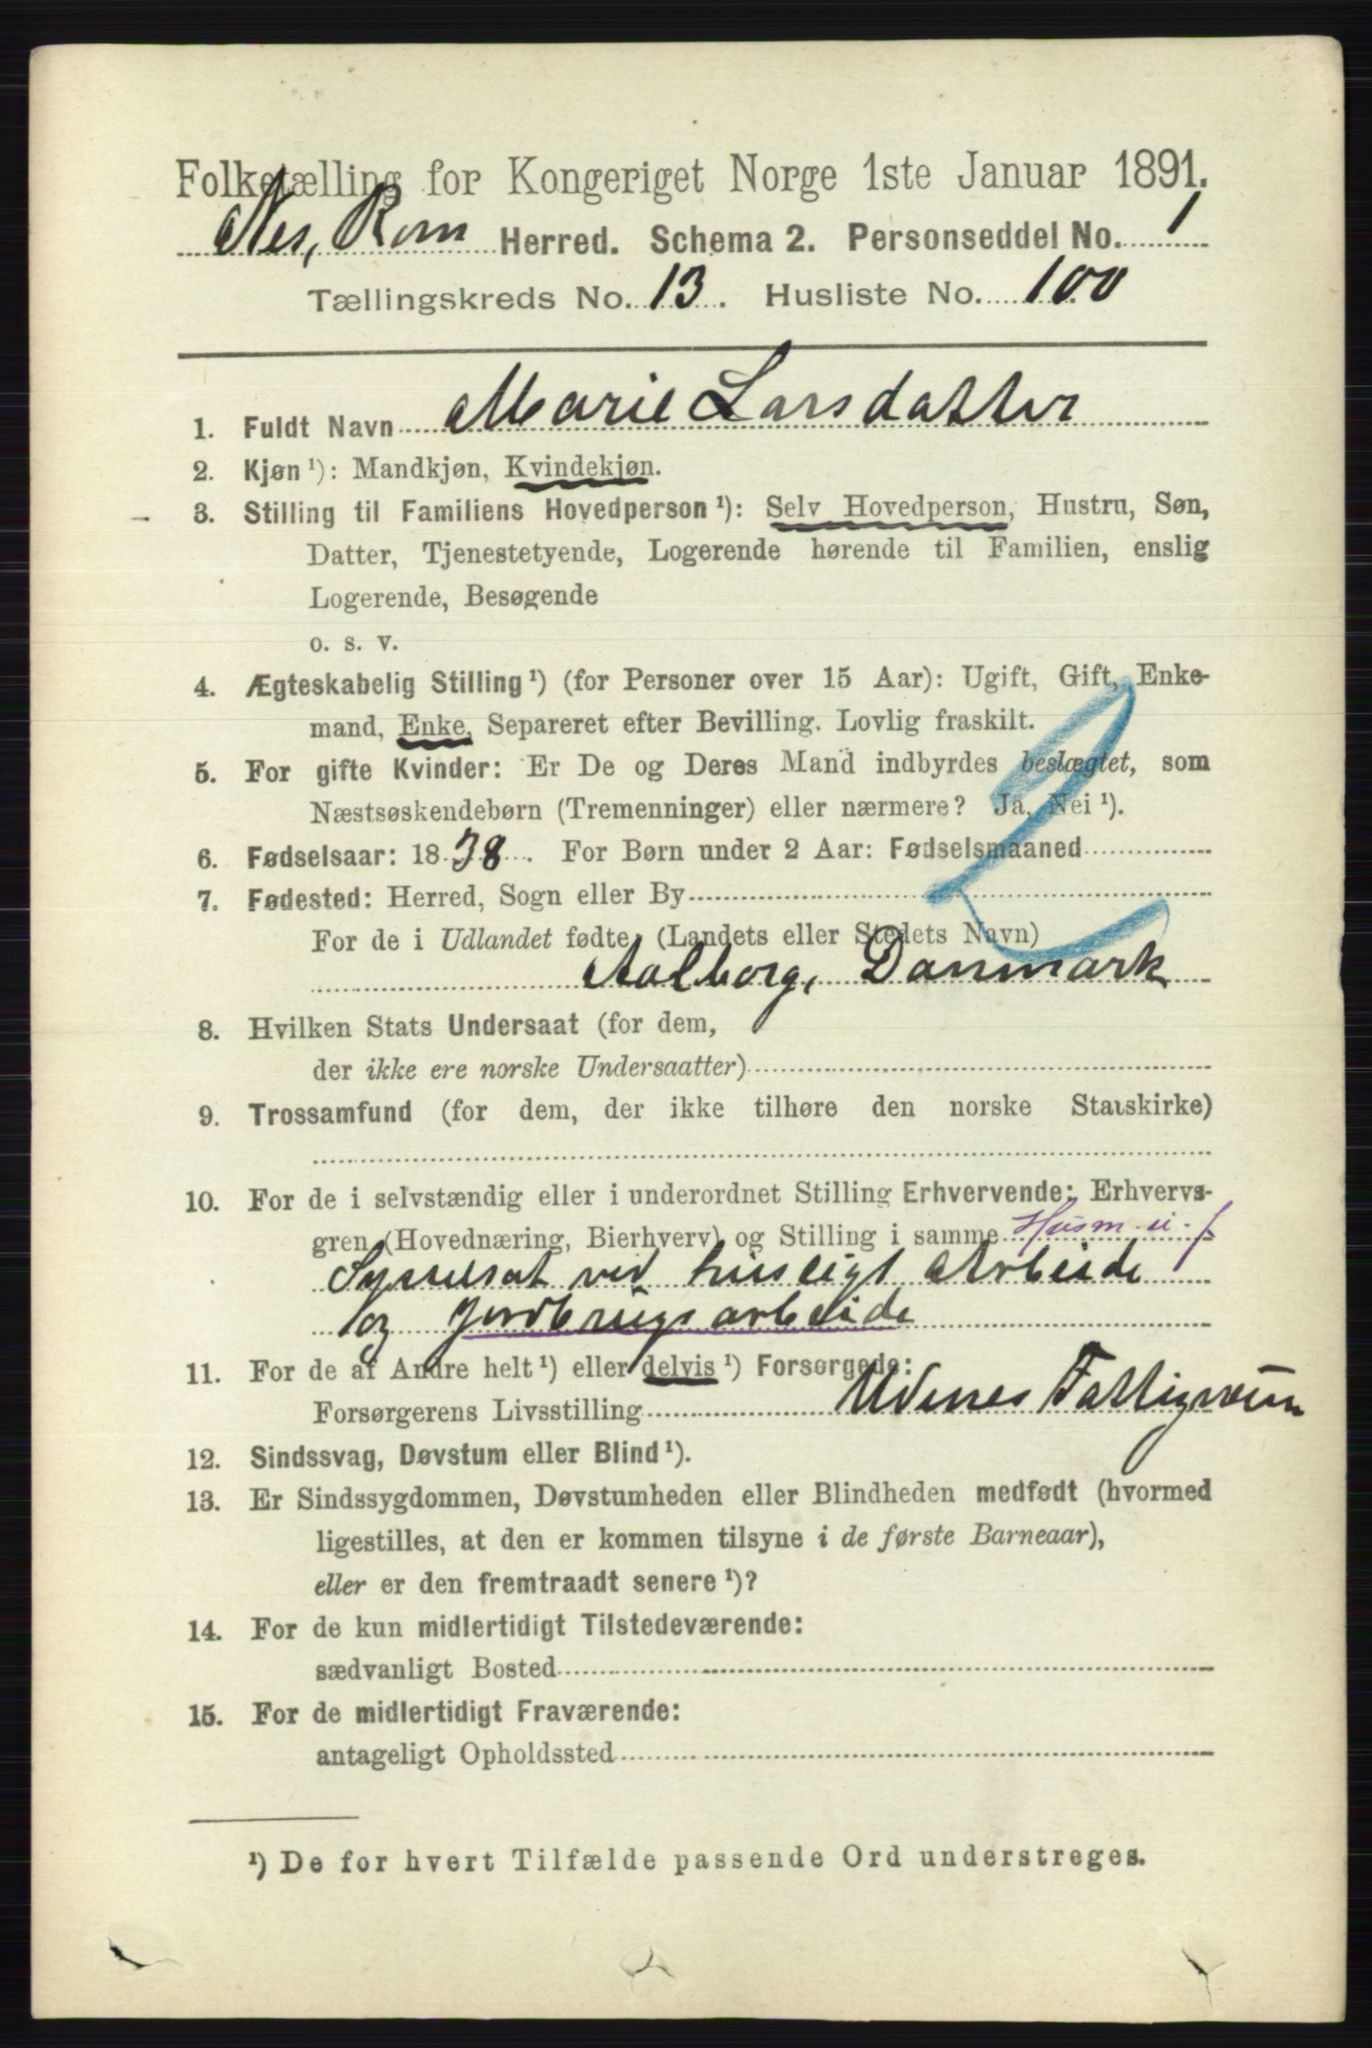 Folketælling for Kongeriget Norge 1ste Januar 1891.
Nes, Rom Herred. Schema 2. Personseddel No. 1
Tællingskreds No. 13. Husliste No. 100
1. Fuldt Navn Marie Larsdatter
2. Kjøn ¹): Mandkjøn, Kvindekjøn.
3. Stilling til Familiens Hovedperson ¹): Selv Hovedperson, Hustru, Søn,
Datter, Tjenestetyende, Logerende hørende til Familien, enslig
Logerende, Besøgende
o. s. v.
4. Ægteskabelig Stilling ¹) (for Personer over 15 Aar): Ugift, Gift, Enke-
mand, Enke, Separeret efter Bevilling. Lovlig fraskilt.
5. For gifte Kvinder: Er De og Deres Mand indbyrdes beslægtet, som
Næstsøskendebørn (Tremenninger) eller nærmere? Ja, Nei ¹).
6. Fødselsaar: 1838. For Børn under 2 Aar: Fødselsmaaned
7. Fødested: Herred, Sogn eller By
For de i Udlandet fødte, (Landets eller Stedets Navn)
Aalborg, Danmark
8. Hvilken Stats Undersaat (for dem,
der ikke ere norske Undersaatter)
9. Trossamfund (for dem, der ikke tilhøre den norske Statskirke)
10. For de i selvstændig eller i underordnet Stilling Erhvervende: Erhvervs-
gren (Hovednæring, Bierhverv) og Stilling i samme Husm. u. f
Sysselsat ved husligt Arbeide
og Jordbrugsarbeide
11. For de af Andre helt ¹) eller delvis ¹) Forsørgede:
Forsørgerens Livsstilling Udenes Fattigvæsen
12. Sindssvag, Døvstum eller Blind ¹).
13. Er Sindssygdommen, Døvstumheden eller Blindheden medfødt (hvormed
ligestilles, at den er kommen tilsyne i de første Barneaar),
eller er den fremtraadt senere ¹)?
14. For de kun midlertidigt Tilstedeværende:
sædvanligt Bosted
15. For de midlertidigt Fraværende:
antageligt Opholdssted
¹) De for hvert Tilfælde passende Ord understreges.